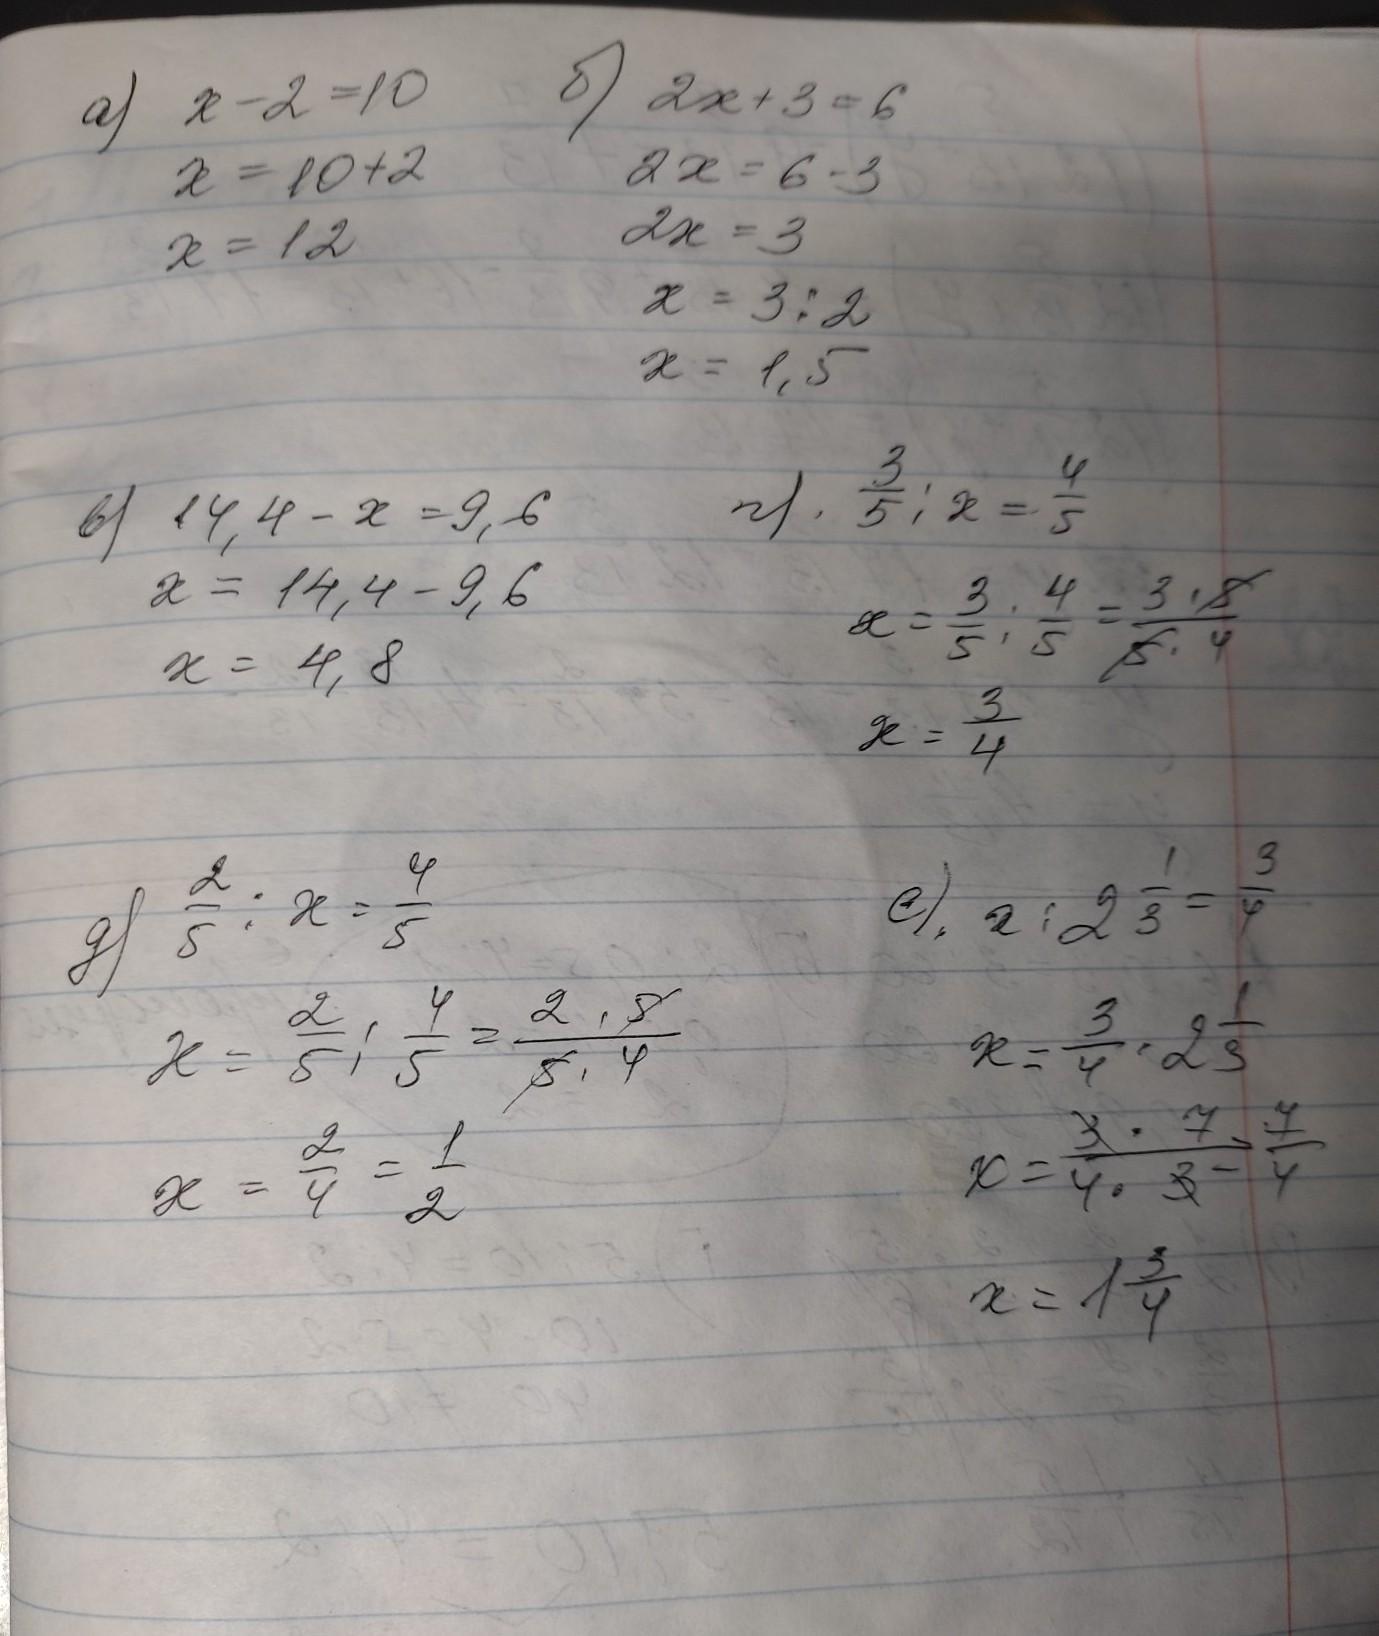 а) x - 2 = 10
x = 10 + 2
x = 12
б) 2x + 3 = 6
2x = 6 - 3
2x = 3
x = 3 : 2
x = 1,5
в) 14,4 - x = 9,6
x = 14,4 - 9,6
x = 4,8
г). 3/5 : x = 4/5
x = 3/5 : 4/5 = 3 · 5 / 5 · 4
x = 3/4
д) 2/5 : x = 4/5
x = 2/5 : 4/5 = 2 · 5 / 5 · 4
x = 2/4 = 1/2
е). x : 2 1/3 = 3/4
x = 3/4 · 2 1/3
x = 3 · 7 / 4 · 3 = 7/4
x = 1 3/4